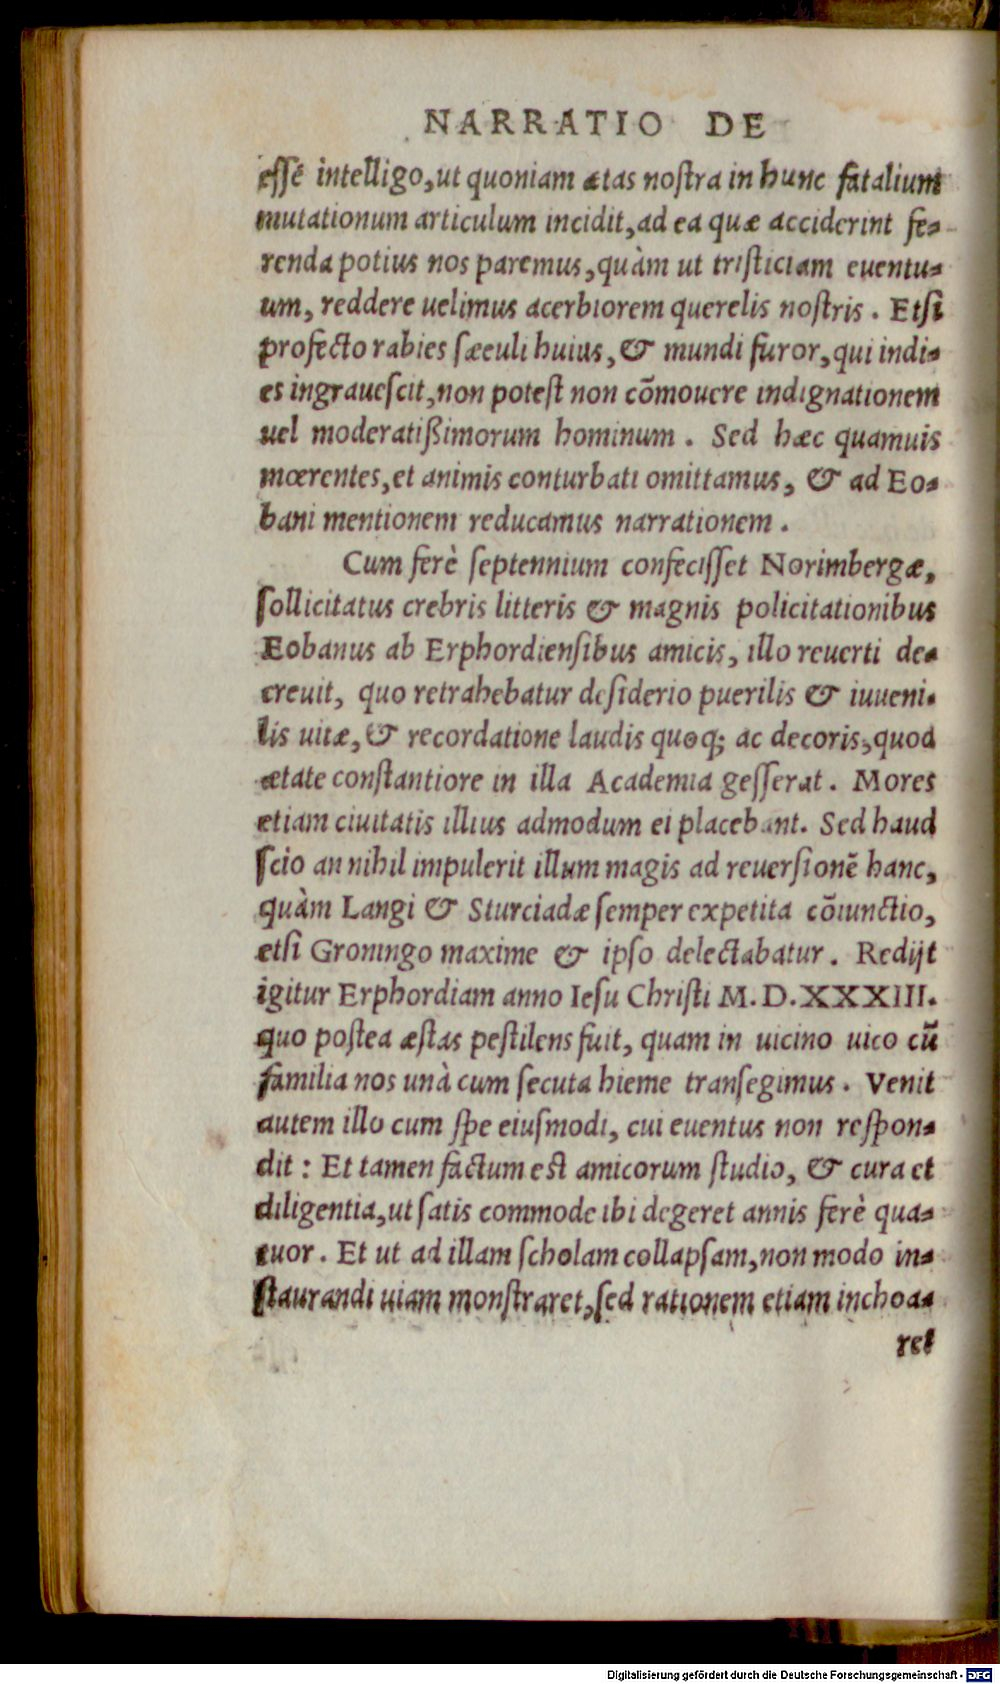 NARRATIO DE
esse intelligo, ut quoniam ætas nostra in hunc fatalium
mutationum articulum incidit, ad ea quæ acciderint fe-
renda potius nos paremus, quàm ut tristiciam euentu-
um, reddere uelimus acerbiorem querelis nostris. Etsi
profecto rabies sæculi huius, & mundi furor, qui indi-
es ingrauescit, non potest non cõmouere indignationem
uel moderatißimorum hominum. Sed hæc quamuis
mœrentes, et animis conturbati omittamus, & ad Eo-
bani mentionem reducamus narrationem.
Cum ferè septennium confecisset Norimbergæ,
sollicitatus crebris litteris & magnis policitationibus
Eobanus ab Erphordiensibus amicis, illo reuerti de-
creuit, quo retrahebatur desiderio puerilis & iuueni-
lis uitæ, & recordatione laudis quoq; ac decoris, quod
ætate constantiore in illa Academia gesserat. Mores
etiam ciuitatis illius admodum ei placebant. Sed haud
scio an nihil impulerit illum magis ad reuersionẽ hanc,
quàm Langi & Sturciadæ semper expetita cõiunctio,
etsi Groningo maxime & ipso delectabatur. Redijt
igitur Erphordiam anno Iesu Christi M.D.XXXIII.
quo postea æstas pestilens fuit, quam in uicino uico cũ
familia nos unà cum secuta hieme transegimus. Venit
autem illo cum spe eiusmodi, cui euentus non respon-
dit: Et tamen factum est amicorum studio, & cura et
diligentia, ut satis commode ibi degeret annis ferè qua-
tuor. Et ut ad illam scholam collapsam, non modo in-
staurandi uiam monstraret, sed rationem etiam inchoa-
ret
Digitalisierung gefördert durch die Deutsche Forschungsgemeinschaft - DFG